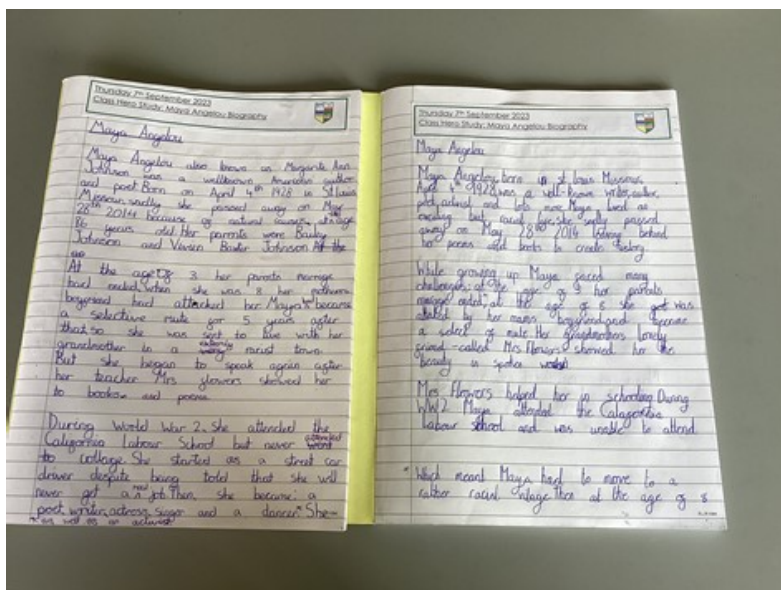 Thursday 7th September 2023
Class Hero Study: Maya Angelou Biography
Maya Angelou
Maya Angelou also known as Margarite Ann
Johnson was a wellknown American author
and poet Born on April 4th 1928 in St Louis
Missouri sadly she passed away on May
28th 2014 because of natural causes at age
86 years old. Her parents were Bailey
Johnson and Vivien Baxter Johnson At the
At the age of 3 her parents marrage
had ended, when she was 8 her mothers
boyfriend had attacked her. Maya became
a selective mute for 5 years after
that, so she was sent to live with her
grandmother in a extremly racist town.
But she began to speak again after
her teacher Mrs flowers showed her
to books and poems
During World War 2, She attended the
California Labour School but never attended
to collage. She started as a street car
driver despite being told that she will
never get a job. Then, she became: a
poet, writer, actress, singer and a dancer.* She
* as well as an activist
Thursday 7th September 2023
Class Hero Study: Maya Angelou Biography
Maya Angelou
Maya Angelou, born in st louis Missouri
April 4th 1928, was a well-known writer,
poet, and lots more. Maya lived an
exciting but racial life, she sadly passed
away on May 28th 2014 behind
her poems and books to create history.
While growing up Maya faced many
challenges; at the age of 3 her parents
ended, at the age of 8 she got was
by her mums boyfriend, and became
a select of mute. Her grandmothers lonely
friend - called Mrs Flowers showed her the
beauty in spoken
Mrs Flowers helped her in schooling. During
WW2 Maya attended the California
Labour school and was unable to attend
* Which meant Maya had to move to a
rather racial village then at the age of 8